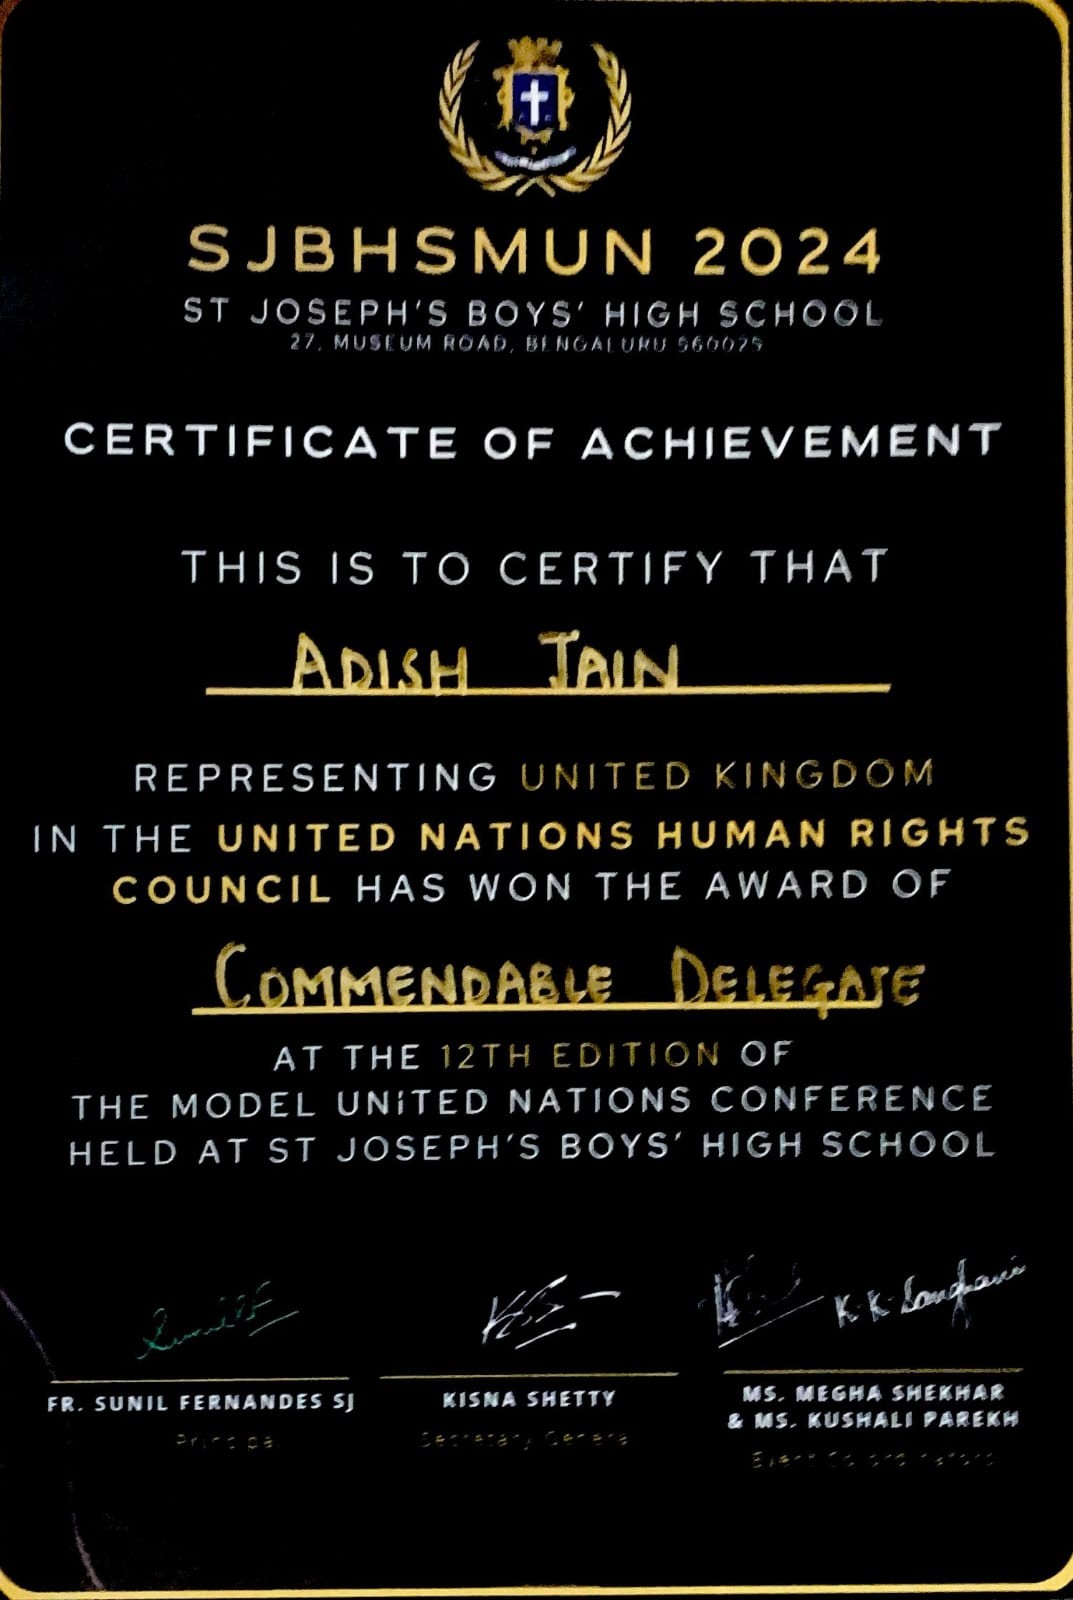 SJBHSMUN 2024
ST JOSEPH'S BOYS' HIGH SCHOOL
27, MUSEUM ROAD, BENGALURU 560025
CERTIFICATE OF ACHIEVEMENT
THIS IS TO CERTIFY THAT
ADISH JAIN
REPRESENTING UNITED KINGDOM
IN THE UNITED NATIONS HUMAN RIGHTS
COUNCIL HAS WON THE AWARD OF
COMMENDABLE DELEGATE
AT THE 12TH EDITION OF
THE MODEL UNiTED NATIONS CONFERENCE
HELD AT ST JOSEPH'S BOYS' HIGH SCHOOL
K. K. Sanghani
FR. SUNIL FERNANDES SJ
Principal
KISNA SHETTY
Secretary General
MS. MEGHA SHEKHAR
& MS. KUSHALI PAREKH
Event Co-ordinators